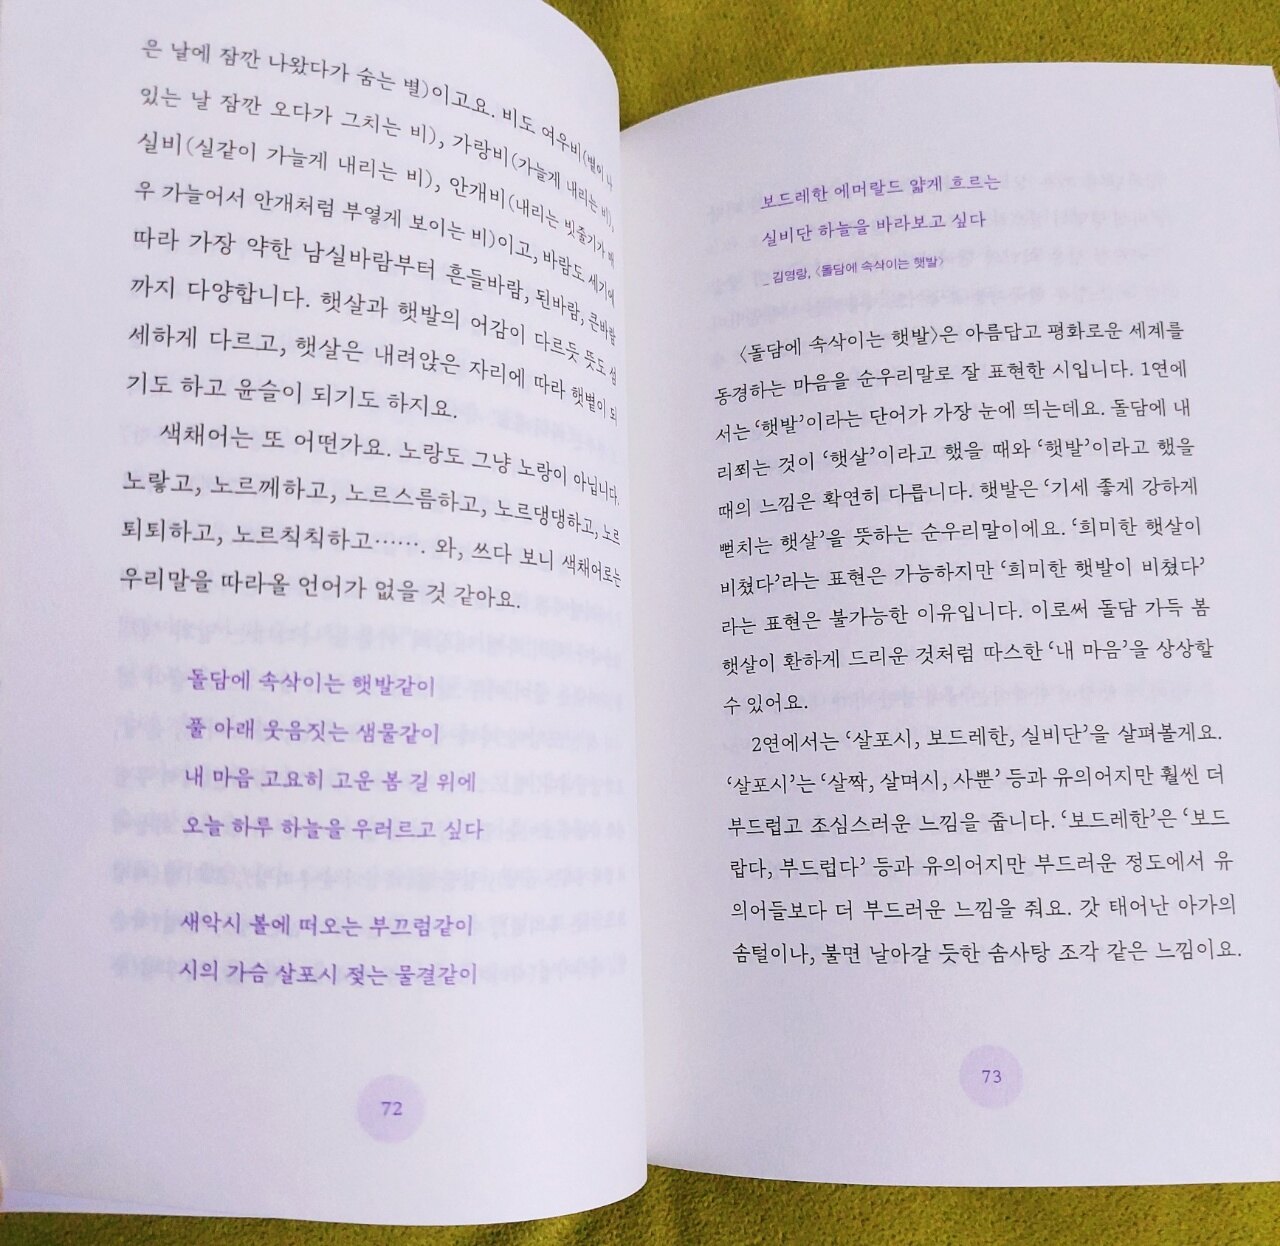 은 날에 잠깐 나왔다가 숨는 별)이고요. 비도 여우비(볕이 나
있는 날 잠깐 오다가 그치는 비), 가랑비(가늘게 내리는 비),
실비(실같이 가늘게 내리는 비), 안개비(내리는 빗줄기가 매
우 가늘어서 안개처럼 부옇게 보이는 비)이고, 바람도 세기에
따라 가장 약한 남실바람부터 흔들바람, 된바람, 큰바람
까지 다양합니다. 햇살과 햇발의 어감이 다르듯 뜻도 섬
세하게 다르고, 햇살은 내려앉은 자리에 따라 햇볕이 되
기도 하고 윤슬이 되기도 하지요.
색채어는 또 어떤가요. 노랑도 그냥 노랑이 아닙니다.
노랗고, 노르께하고, 노르스름하고, 노르댕댕하고, 노르
퇴퇴하고, 노르칙칙하고…… 와, 쓰다 보니 색채어로는
우리말을 따라올 언어가 없을 것 같아요.
돌담에 속삭이는 햇발같이
풀 아래 웃음짓는 샘물같이
내 마음 고요히 고운 봄 길 위에
오늘 하루 하늘을 우러르고 싶다
새악시 볼에 떠오는 부끄럼같이
시의 가슴 살포시 젖는 물결같이
72
보드레한 에머랄드 얇게 흐르는
실비단 하늘을 바라보고 싶다
_ 김영랑, 〈돌담에 속삭이는 햇발〉
〈돌담에 속삭이는 햇발〉은 아름답고 평화로운 세계를
동경하는 마음을 순우리말로 잘 표현한 시입니다. 1연에
서는 ‘햇발’이라는 단어가 가장 눈에 띄는데요. 돌담에 내
리쬐는 것이 ‘햇살’이라고 했을 때와 ‘햇발’이라고 했을
때의 느낌은 확연히 다릅니다. 햇발은 ‘기세 좋게 강하게
뻗치는 햇살’을 뜻하는 순우리말이에요. ‘희미한 햇살이
비쳤다’라는 표현은 가능하지만 ‘희미한 햇발이 비쳤다’
라는 표현은 불가능한 이유입니다. 이로써 돌담 가득 봄
햇살이 환하게 드리운 것처럼 따스한 ‘내 마음’을 상상할
수 있어요.
2연에서는 ‘살포시, 보드레한, 실비단’을 살펴볼게요.
‘살포시’는 ‘살짝, 살며시, 사뿐’ 등과 유의어지만 훨씬 더
부드럽고 조심스러운 느낌을 줍니다. ‘보드레한’은 ‘보드
랍다, 부드럽다’ 등과 유의어지만 부드러운 정도에서 유
의어들보다 더 부드러운 느낌을 줘요. 갓 태어난 아가의
솜털이나, 불면 날아갈 듯한 솜사탕 조각 같은 느낌이요.
73